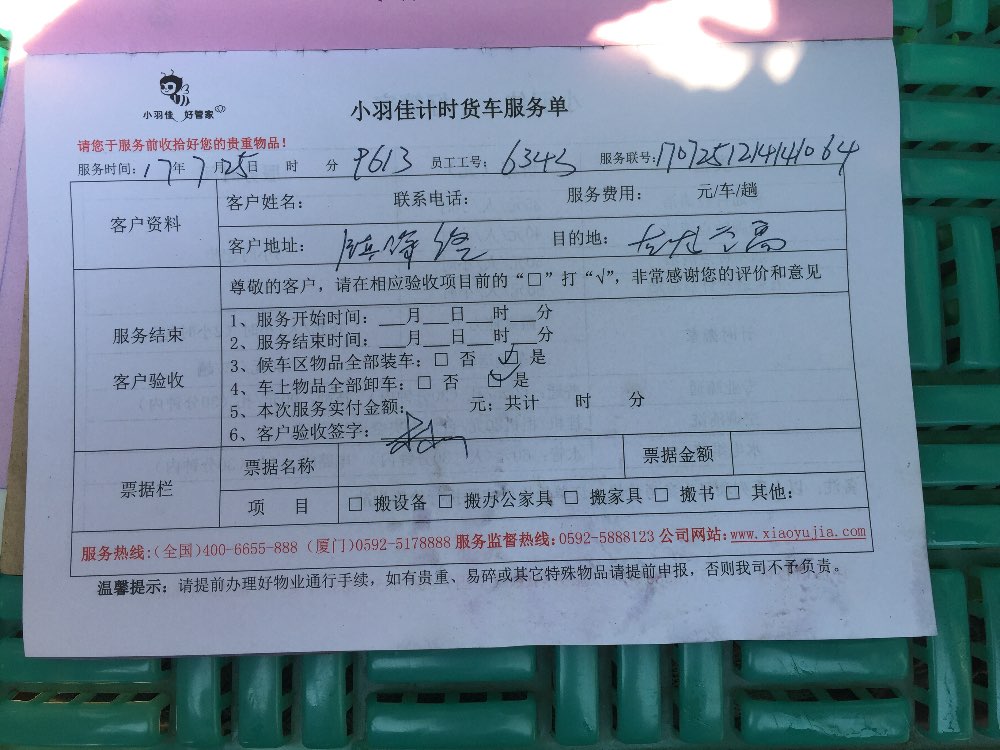 小羽佳 好管家
小羽佳计时货车服务单
请您于服务前收拾好您的贵重物品！
服务时间：17年7月25日 时 分 9613 员工工号：6343 服务联号：1707251214141064
客户资料
客户姓名： 联系电话： 服务费用： 元/车/趟
客户地址： 目的地：
尊敬的客户，请在相应验收项目前的“□”打“√”，非常感谢您的评价和意见
服务结束
客户验收
1、服务开始时间：___月___日___时___分
2、服务结束时间：___月___日___时___分
3、候车区物品全部装车：□ 否 ☑ 是
4、车上物品全部卸车：□ 否 ☑ 是
5、本次服务实付金额： 元；共计 时 分
6、客户验收签字：
票据栏
票据名称 票据金额
项 目 □ 搬设备 □ 搬办公家具 □ 搬家具 □ 搬书 □ 其他：
服务热线：(全国)400-6655-888 (厦门)0592-5178888 服务监督热线：0592-5888123 公司网站：www.xiaoyujia.com
温馨提示：请提前办理好物业通行手续，如有贵重、易碎或其它特殊物品请提前申报，否则我司不予负责。